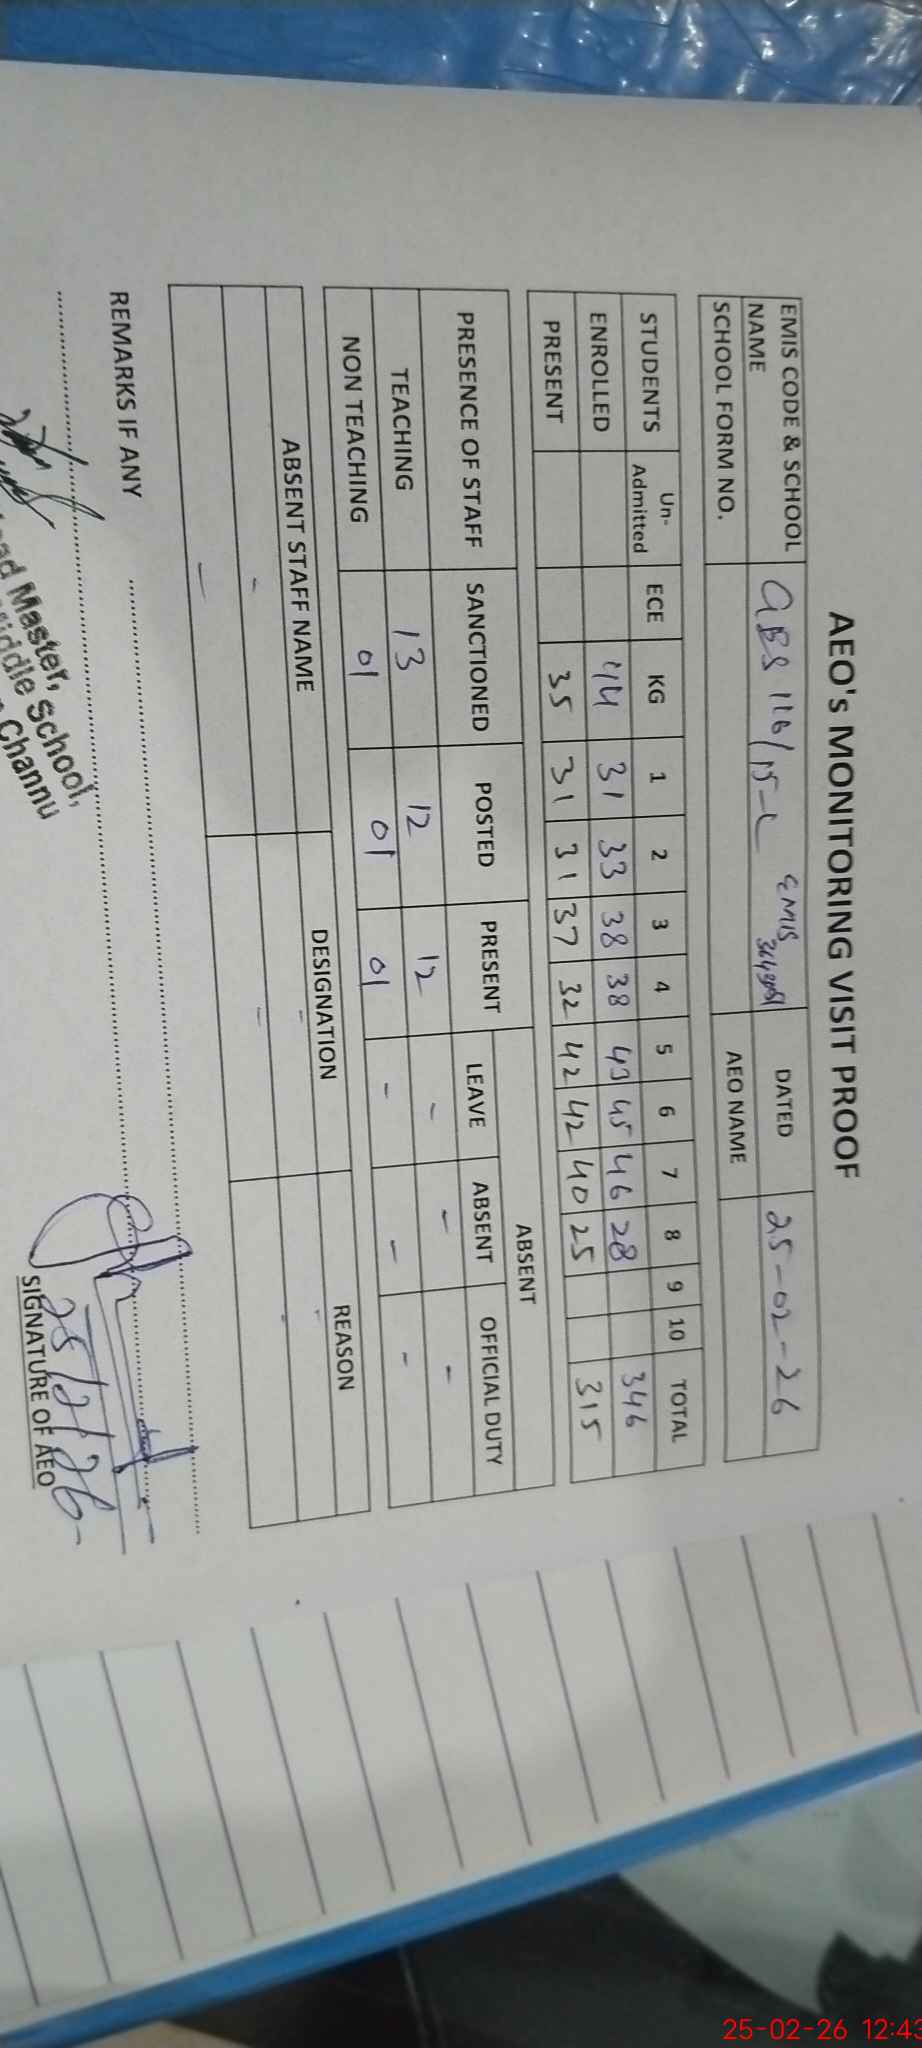 AEO's MONITORING VISIT PROOF
EMIS CODE & SCHOOL NAME GES 116/15-L EMIS DATED 25-02-26
SCHOOL FORM NO. AEO NAME
STUDENTS Un-Admitted ECE KG 1 2 3 4 5 6 7 8 9 10 TOTAL
ENROLLED 44 31 33 38 38 43 45 46 28 346
PRESENT 35 31 31 37 32 42 42 40 25 315
PRESENCE OF STAFF SANCTIONED POSTED PRESENT ABSENT
LEAVE ABSENT OFFICIAL DUTY
TEACHING 13 12 12 - - -
NON TEACHING 01 01 01 - - -
ABSENT STAFF NAME DESIGNATION REASON
- - -
- - -
REMARKS IF ANY
25/2/26
SIGNATURE OF AEO
Master,
Middle School,
Channu
25-02-26 12:43